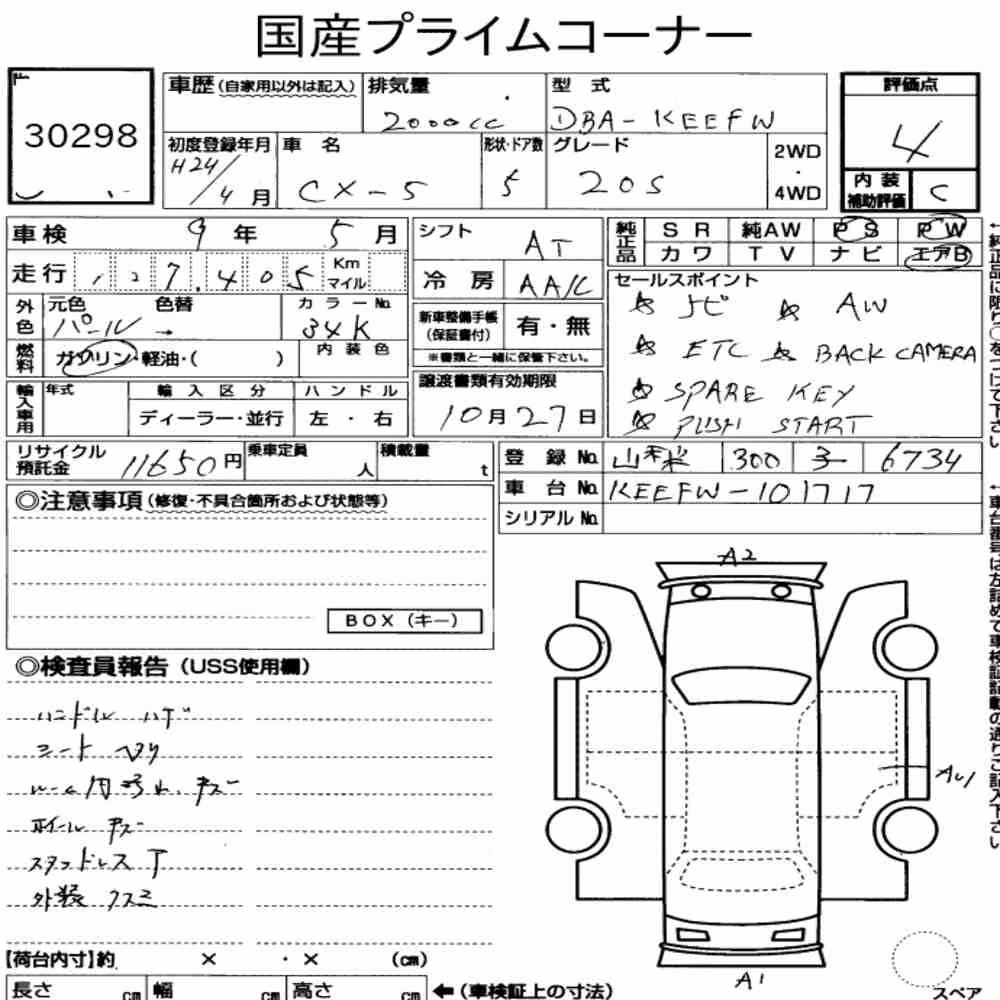 国産プライムコーナー
30298
車歴 (自家用以外は記入) 排気量 2000cc 型式 DBA-KEEFW
初度登録年月 H24/4月 車名 CX-5 形状・ドア数 5 グレード 20S 2WD・4WD
評価点 4
内装補助評価 C
車検 9年 5月
走行 127,405 Km マイル
外色 元色 パール 色替 → カラーNo. 34K
燃料 ガソリン・軽油・( ) 内装色
輸入車用 年式 輸入区分 ディーラー・並行 ハンドル 左・右
シフト AT
冷房 AA/C
新車整備手帳(保証書付) 有・無
※書類と一緒に保管下さい。
譲渡書類有効期限
10月27日
純正品 SR 純AW PS PW
カワ TV ナビ エアB
セールスポイント
☆ ナビ ☆ AW
☆ ETC ☆ BACK CAMERA
☆ SPARE KEY
☆ PUSH START
←純正品に限り○をつけて下さい
リサイクル預託金 11650円 乗車定員 人 積載量 t
登録No. 山梨 300 6734
車台No. KEEFW-101717
シリアルNo.
←車台番号は左詰めで車検証記載の通りご記入下さい
◎注意事項 (修復・不具合箇所および状態等)
BOX (キー)
◎検査員報告 (USS使用欄)
ハンドル ハゲ
シート ヘリ
ルーム内 キズ
ホイール キズ
スタッドレス T
外装 クスミ
A2
AU1
A1
スペア
【荷台内寸】約 × ・ × (cm)
長さ cm 幅 cm 高さ cm ←(車検証上の寸法)